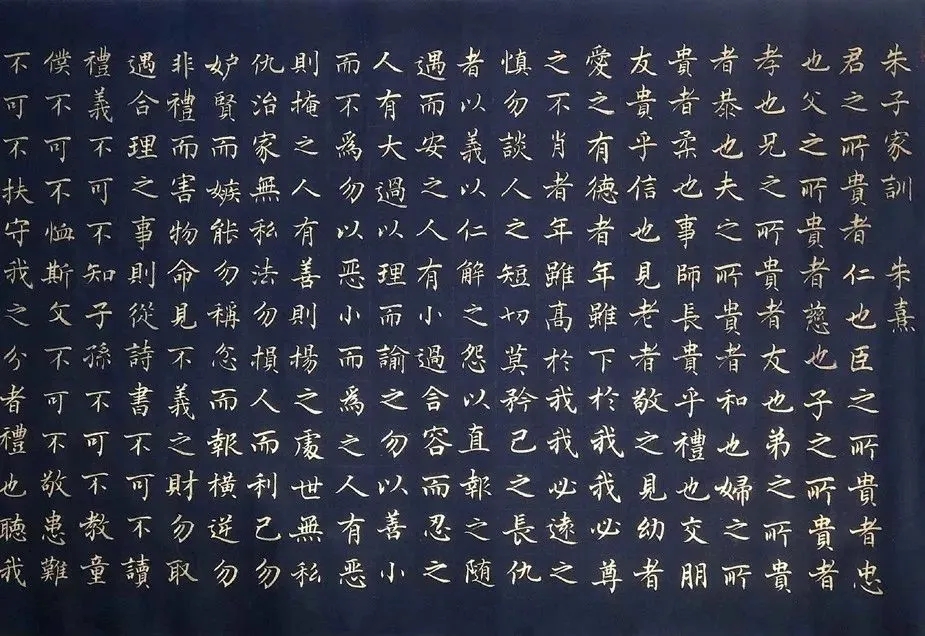 朱子家訓 朱熹
君之所貴者仁也臣之所貴者忠
也父之所貴者慈也子之所貴者
孝也兄之所貴者友也弟之所貴
者恭也夫之所貴者和也婦之所
貴者柔也事師長貴乎禮也交朋
友貴乎信也見老者敬之見幼者
愛之有德者年雖下於我我必尊
之不肖者年雖高於我我必遠之
慎勿談人之短切莫矜己之長仇
者以義以仁解之怨以直報之随
遇而安之人有小過含容而忍之
人有大過以理而諭之勿以善小
而不為勿以惡小而為之人有惡
則掩之人有善則揚之處世無私
仇治家無私法勿損人而利己勿
妒賢而嫉能勿稱忿而報橫逆勿
非禮而害物命見不義之財勿取
遇合理之事則從詩書不可不讀
禮義不可不知子孫不可不教童
僕不可不恤斯父不可不敬患難
不可不扶守我之分者禮也聽我